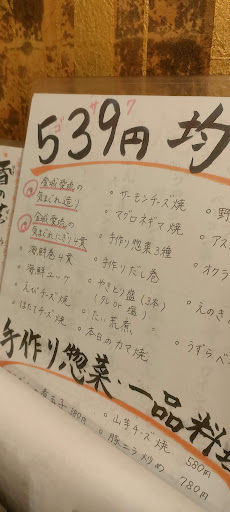 ゴ サ ク
539円 均
金城愛琉の
気まぐれ造り
金城愛琉の
気まぐれにぎり4貫
海鮮巻4貫
海鮮ユッケ
えびチーズ焼
ほたてチーズ焼
サーモンチーズ焼
マグロネギマ焼
手作り惣菜3種
手作りだし巻
やきとり盛(3本)
(タレor塩)
たい荒煮
本日のカマ焼
野
アス
オクラ
えのき
うずらベ
手作り惣菜・一品料理
山芋チーズ焼 580円
豚ニラ炒め 780円